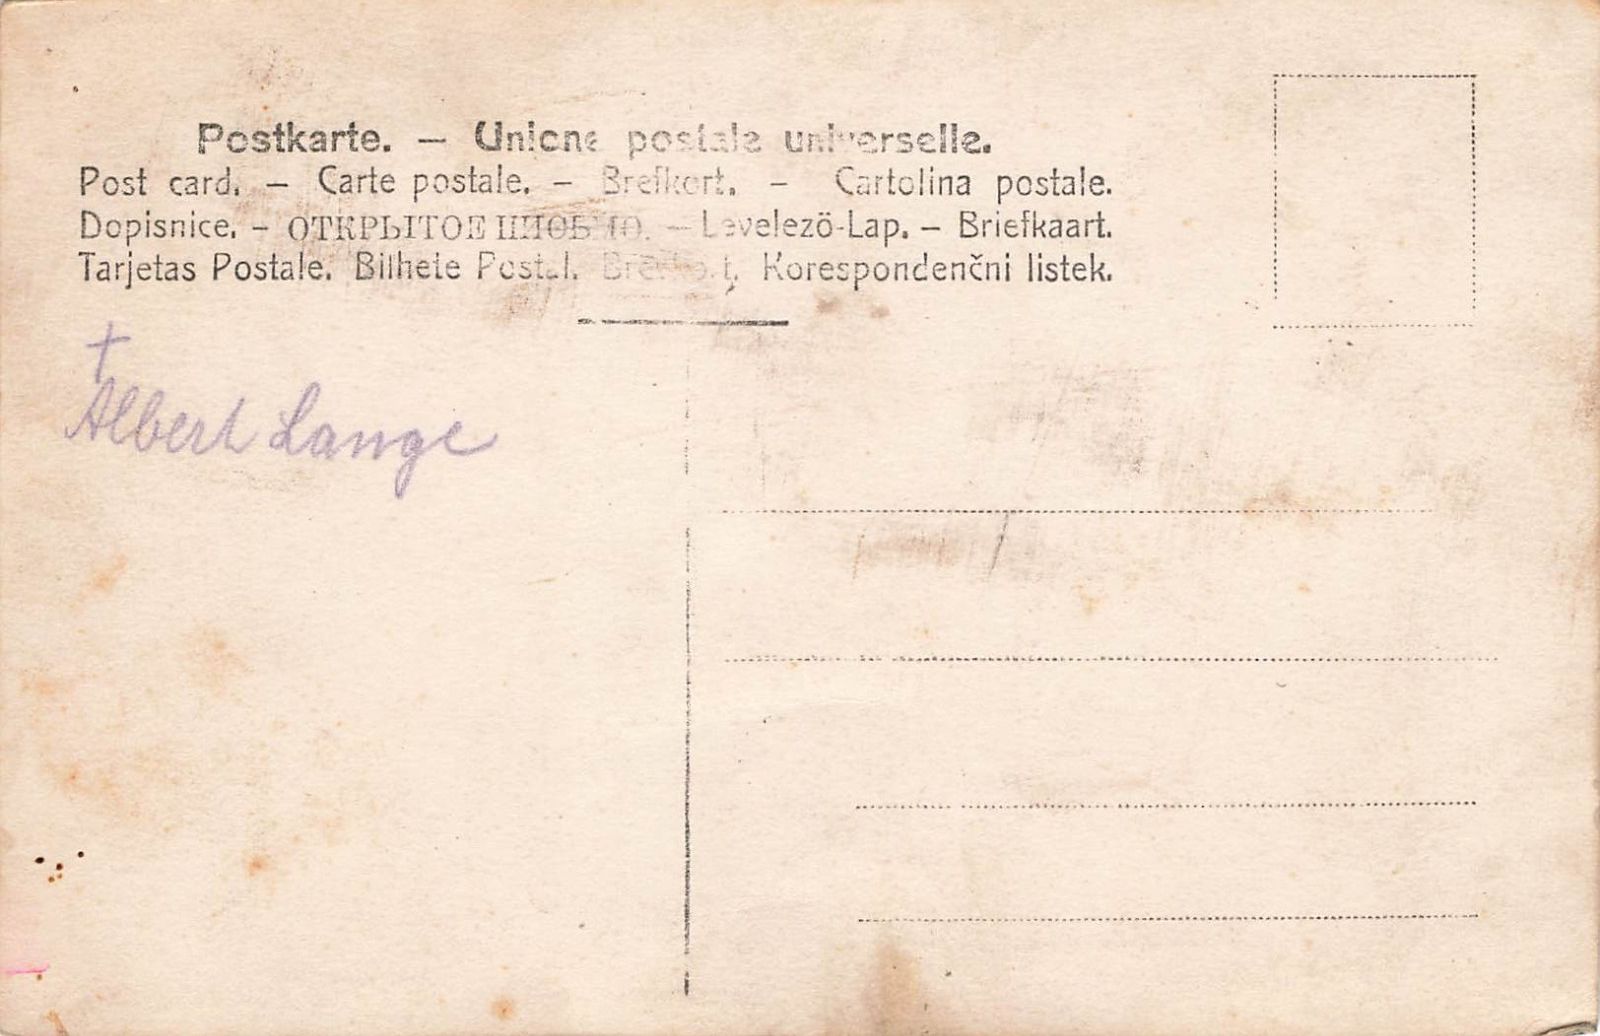 Postkarte. — Unione postale universelle.
Post card. — Carte postale. — Brefkort. — Cartolina postale.
Dopisnice. — ОТКРЫТОЕ — Levelező-Lap. — Briefkaart.
Tarjetas Postale. Bilhete Postal. Korespondenčni listek.
†
Albert Lange